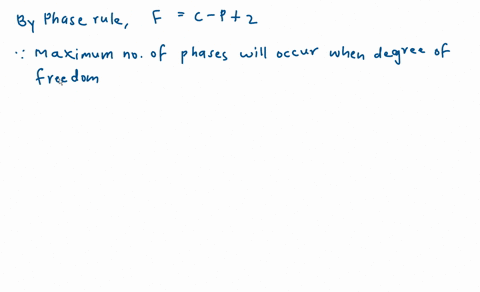 By Phase rule, F = C-P+2
∵ Maximum no. of phases will occur when degree of
freedom